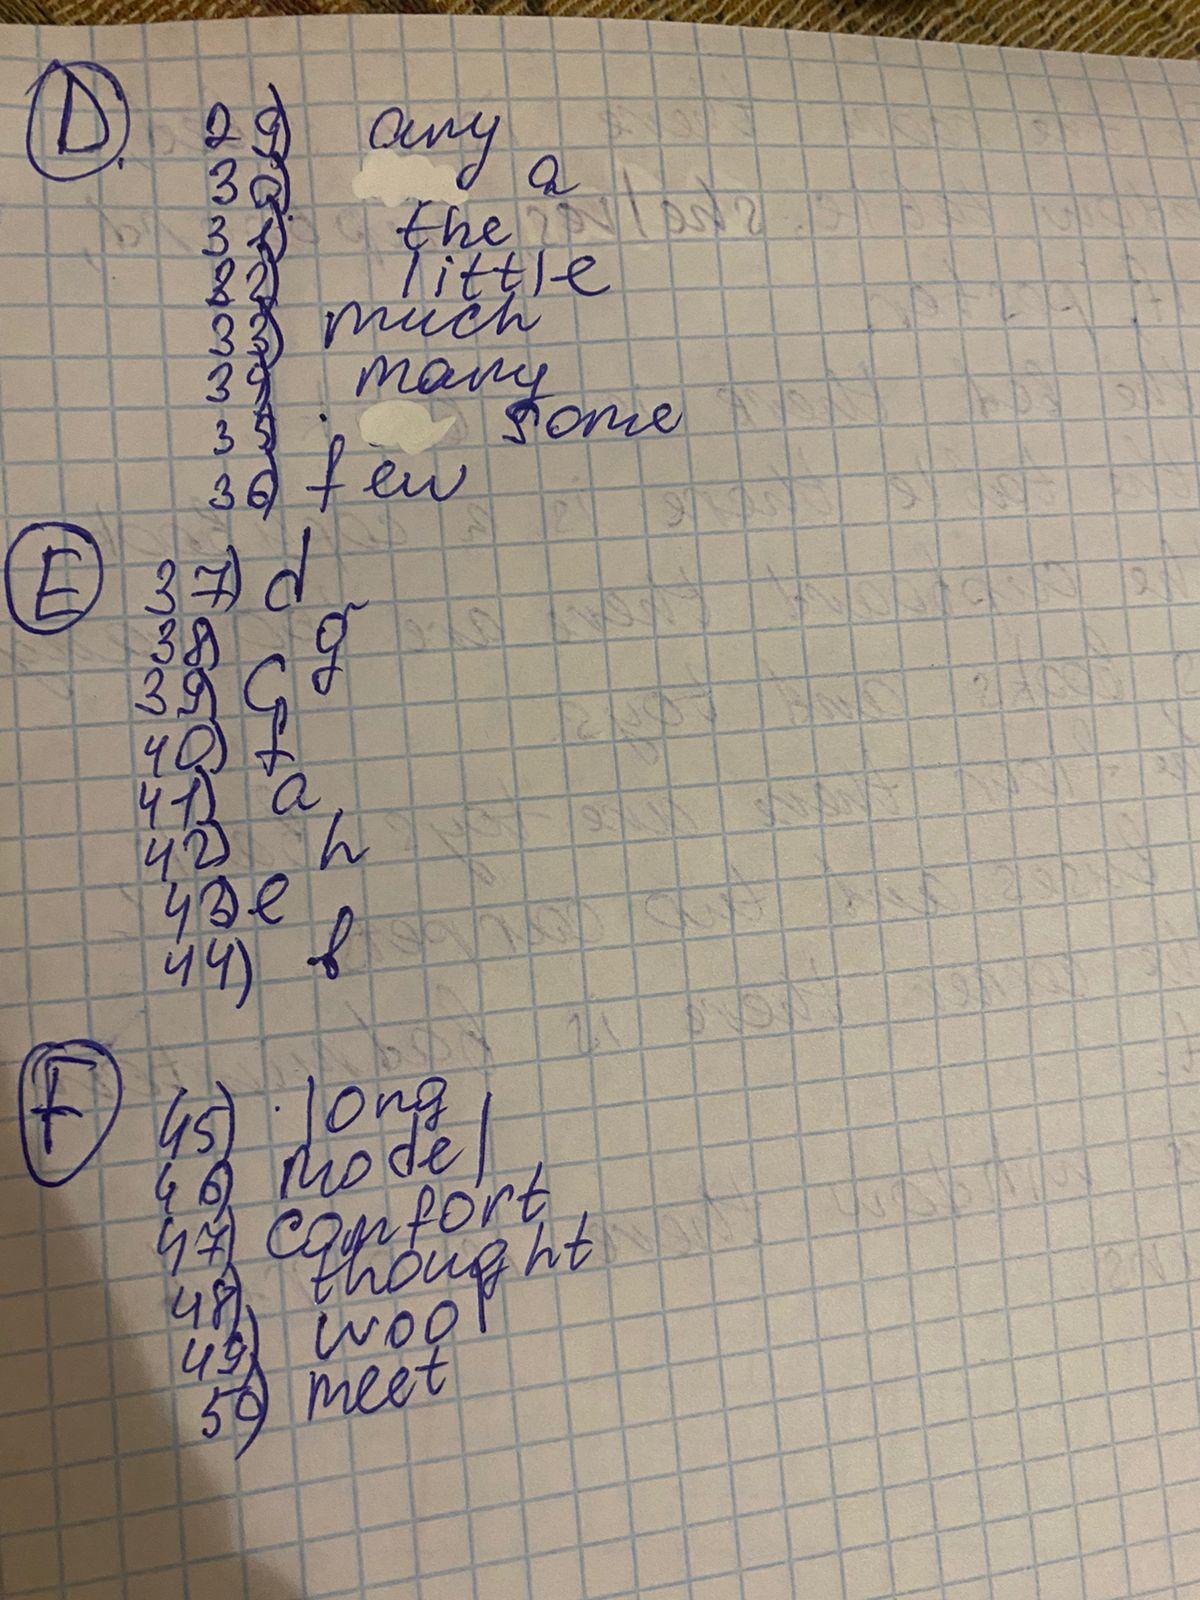 D.
29) any
30) a
31) the
32) little
33) much
34) many
35) some
36) few
E
37) d
38) g
39) c
40) f
41) a
42) h
43) e
44) b
F
45) long
46) model
47) comfort
48) thought
49) wool
50) meet